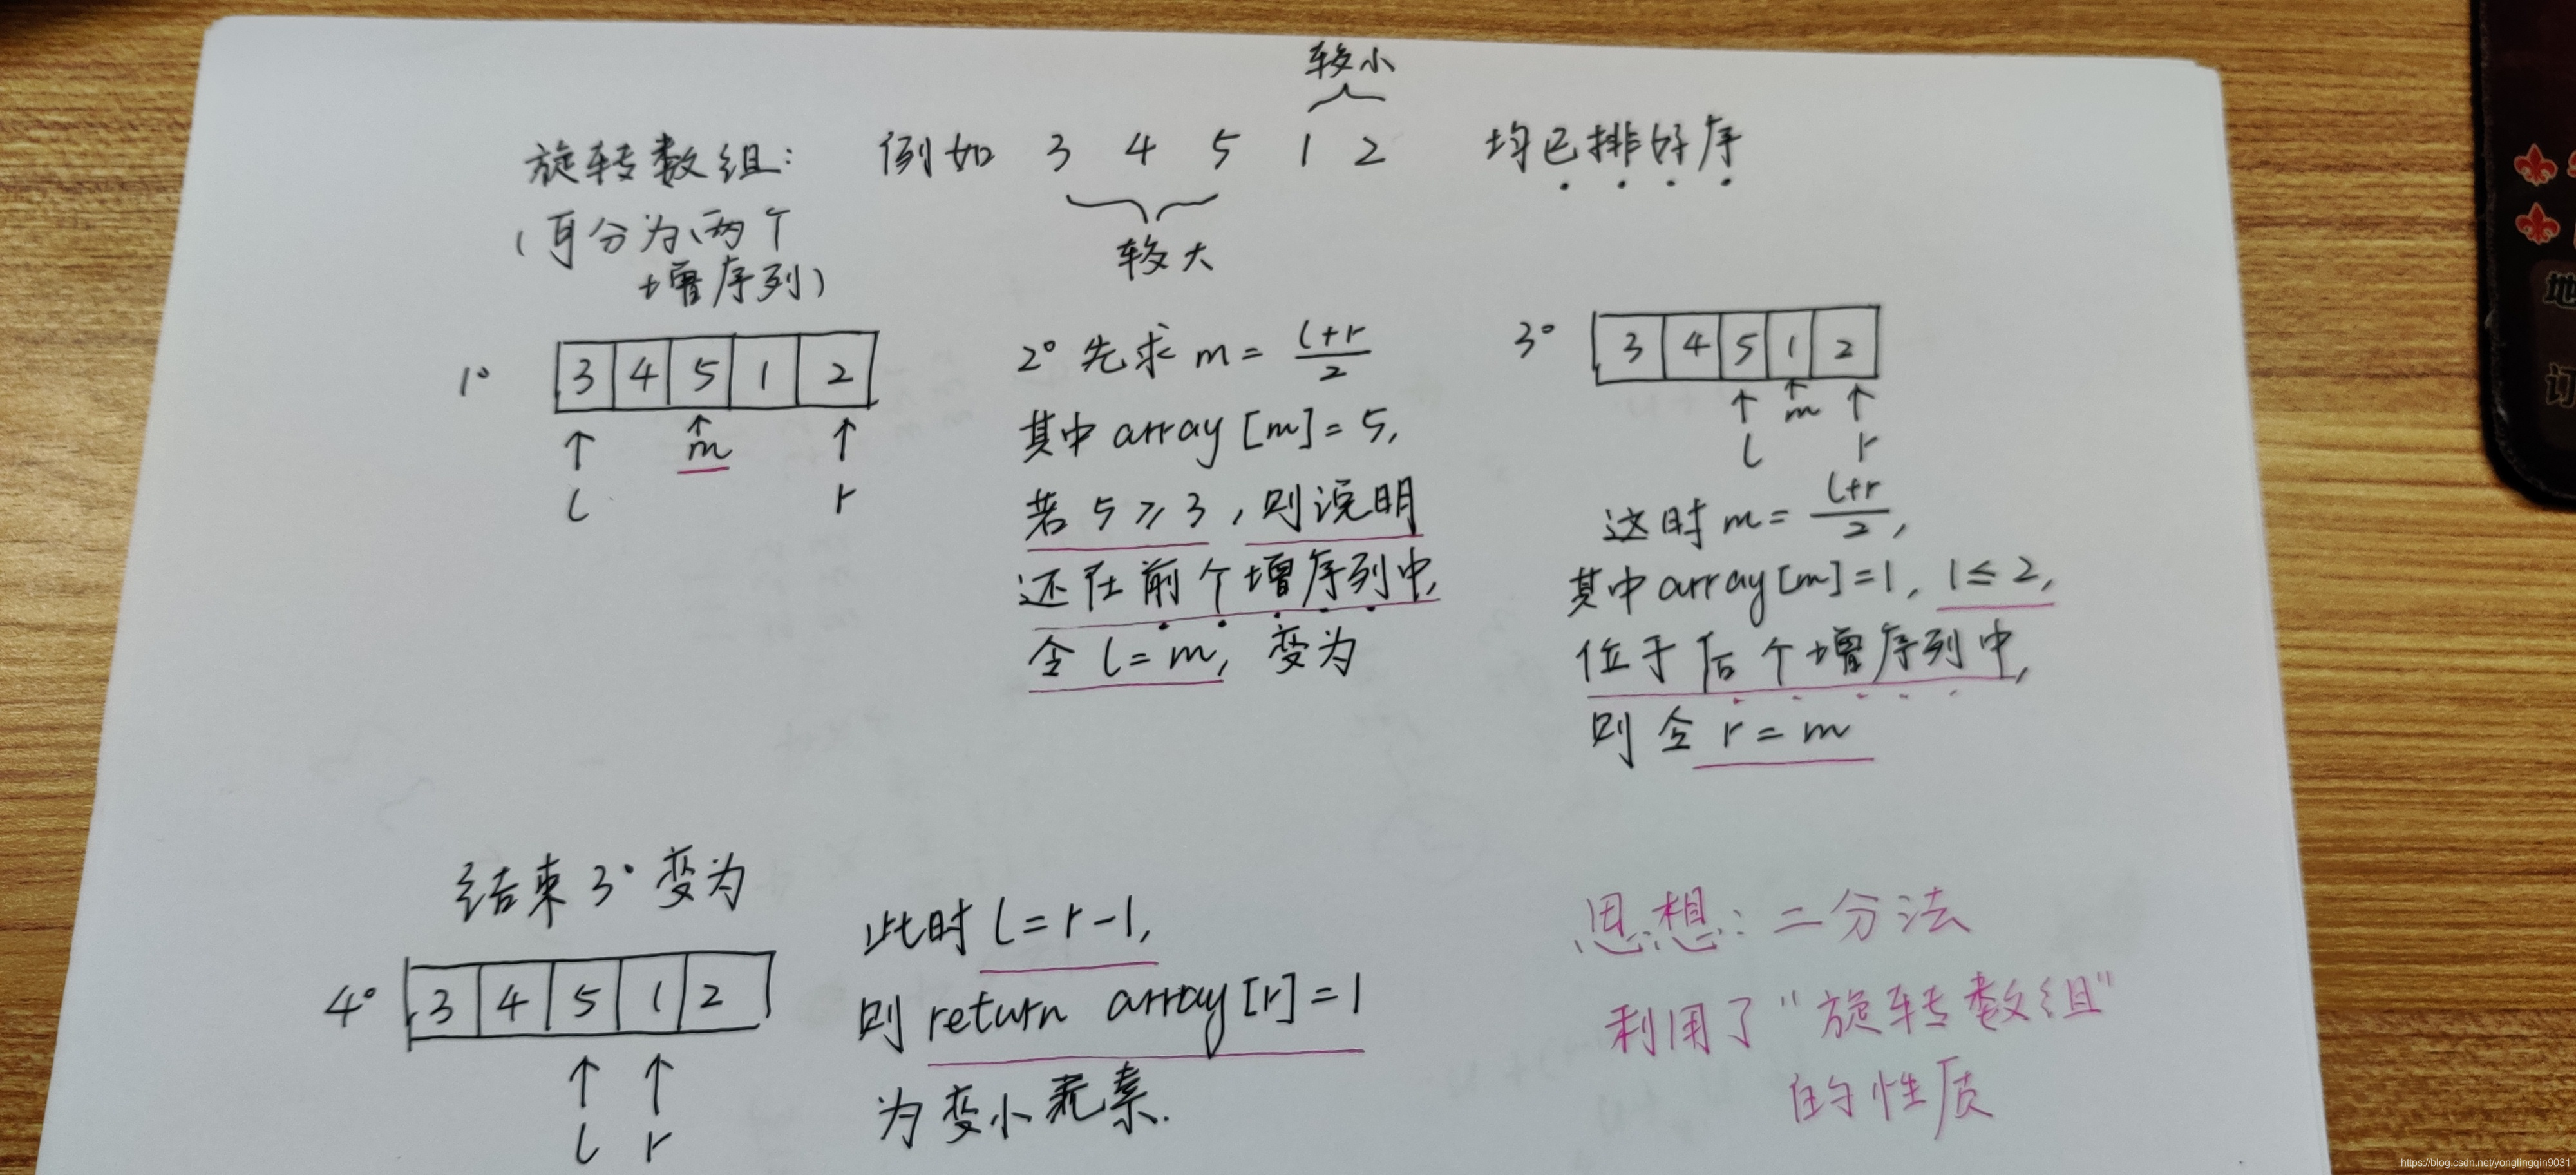 较小
旋转数组: 例如 3 4 5 1 2 均已排好序
(可分为两个
增序列)
较大
1° 3 4 5 1 2
m
l r
2° 先求 m = (l+r)/2
其中 array[m]=5,
若 5 ≥ 3, 则说明
还在前个增序列中,
令 l = m, 变为
3° 3 4 5 1 2
m
l r
这时 m = (l+r)/2,
其中 array[m]=1, 1≤2,
位于后个增序列中,
则令 r = m
结束 3° 变为
4° 3 4 5 1 2
l r
此时 l = r-1,
则 return array[r]=1
为变小元素.
思想: 二分法
利用了“旋转数组”
的性质
地
订
https://blog.csdn.net/yonglingqin9031